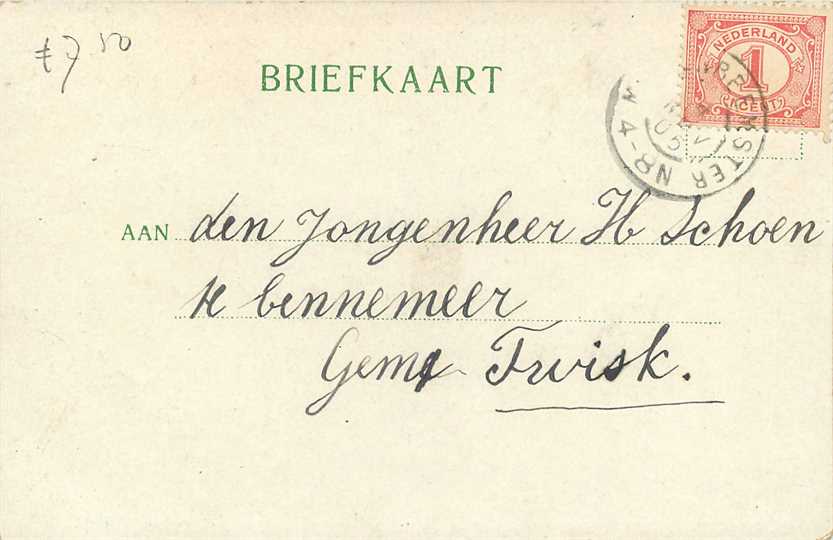 £7 50
BRIEFKAART
NEDERLAND
1
1 CENT
AAN den Jongenheer H Schoen
te bennemeer
Gem Twisk.